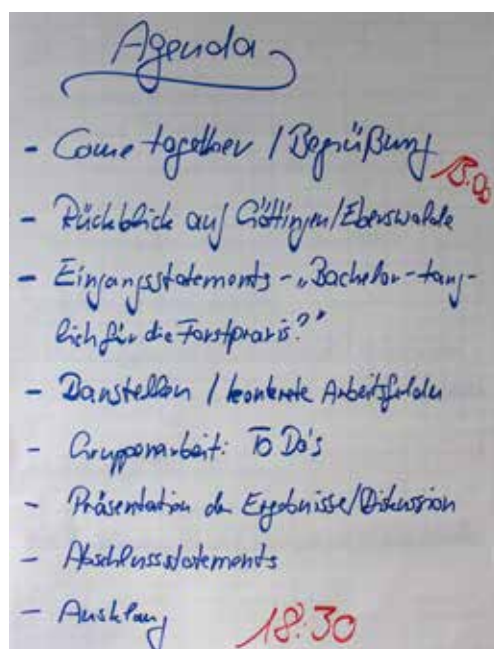 Agenda
- Come together / Begrüßung
13:00
- Rückblick auf Göttingen/Eberswalde
- Eingangsstatements - „Bachelor-taug-
lich für die Forstpraxis?"
- Baustellen / konkrete Arbeitsfelder
- Gruppenarbeit: To Do's
- Präsentation der Ergebnisse/Diskussion
- Abschlussstatements
- Ausklang
18:30